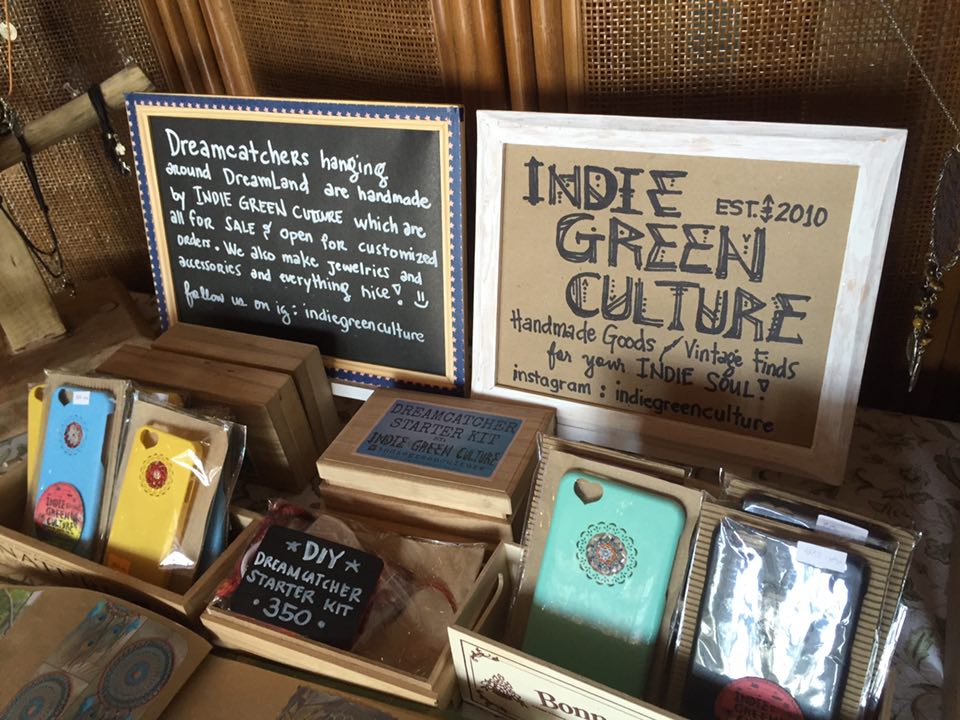 Dreamcatchers hanging
around DreamLand are handmade
by INDIE GREEN CULTURE which are
all for SALE & open for customized
orders. We also make jewelries and
accessories and everything nice!
follow us on ig: indiegreenculture
INDIE
EST. 2010
GREEN
CULTURE
Handmade Goods / Vintage Finds
for your INDIE SOUL!
instagram : indiegreenculture
DREAMCATCHER
STARTER KIT
INDIE GREEN CULTURE
indiegreenculture
*DIY*
DREAMCATCHER
STARTER KIT
• 350 •
INDIE
GREEN
CULTURE
Bonn
INDIE
GREEN